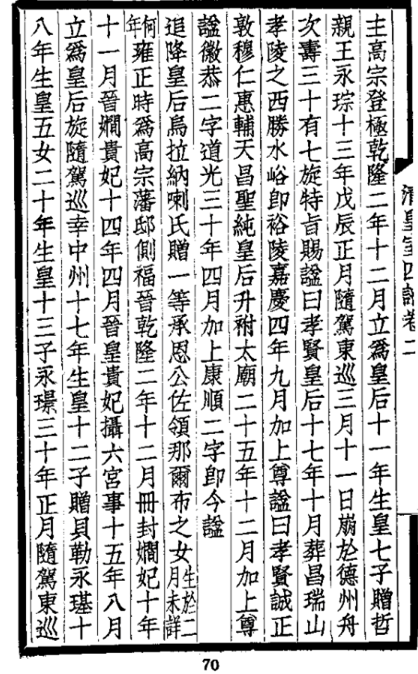 清皇室四譜卷二
主高宗登極乾隆二年十二月立為皇后十一年生皇七子贈哲
親王永琮十三年戊辰正月隨駕東巡三月十一日崩於德州舟
次壽三十有七旋特旨賜諡曰孝賢皇后十七年十月葬昌瑞山
孝陵之西勝水峪即裕陵嘉慶四年九月加上尊諡曰孝賢誠正
敦穆仁惠輔天昌聖純皇后升祔太廟二十五年十二月加上尊
諡徽恭二字道光三十年四月加上康順二字即今諡
追降皇后烏拉納喇氏贈一等承恩公佐領那爾布之女生於二月未詳
何年雍正時為高宗藩邸側福晉乾隆二年十二月冊封嫻妃十年
十一月晉嫻貴妃十四年四月晉皇貴妃攝六宮事十五年八月
立為皇后旋隨駕巡幸中州十七年生皇十二子贈貝勒永璂十
八年生皇五女二十年生皇十三子永璟三十年正月隨駕東巡
70